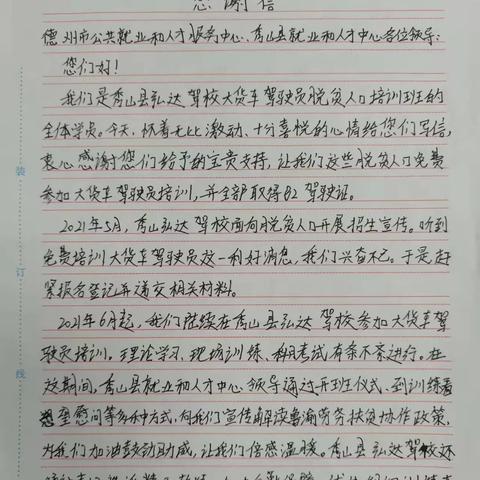 感谢信
德州市公共就业和人才服务中心、秀山县就业和人才中心各位领导:
您们好!
我们是秀山县弘达驾校大货车驾驶员脱贫人口培训班的
全体学员。今天,怀着无比激动、十分喜悦的心情给您们写信,
衷心感谢您们给予的宝贵支持,让我们这些脱贫人口免费
参加大货车驾驶员培训,并全部取得B2驾驶证。
2021年5月,秀山弘达驾校面向脱贫人口开展招生宣传。听到
免费培训大货车驾驶员这一利好消息,我们兴奋不已。于是赶
紧报名登记并递交相关材料。
2021年6月起,我们陆续在秀山县弘达驾校参加大货车驾
驶员培训。理论学习、现场训练、科目考试有条不紊进行。在
这期间,秀山县就业和人才中心领导通过开班仪式、到训练
慰问等多种方式,向我们宣传解读鲁渝劳务扶贫协作政策,
为我们加油鼓劲助威,让我们倍感温暖。秀山县弘达驾校还
装
订
线